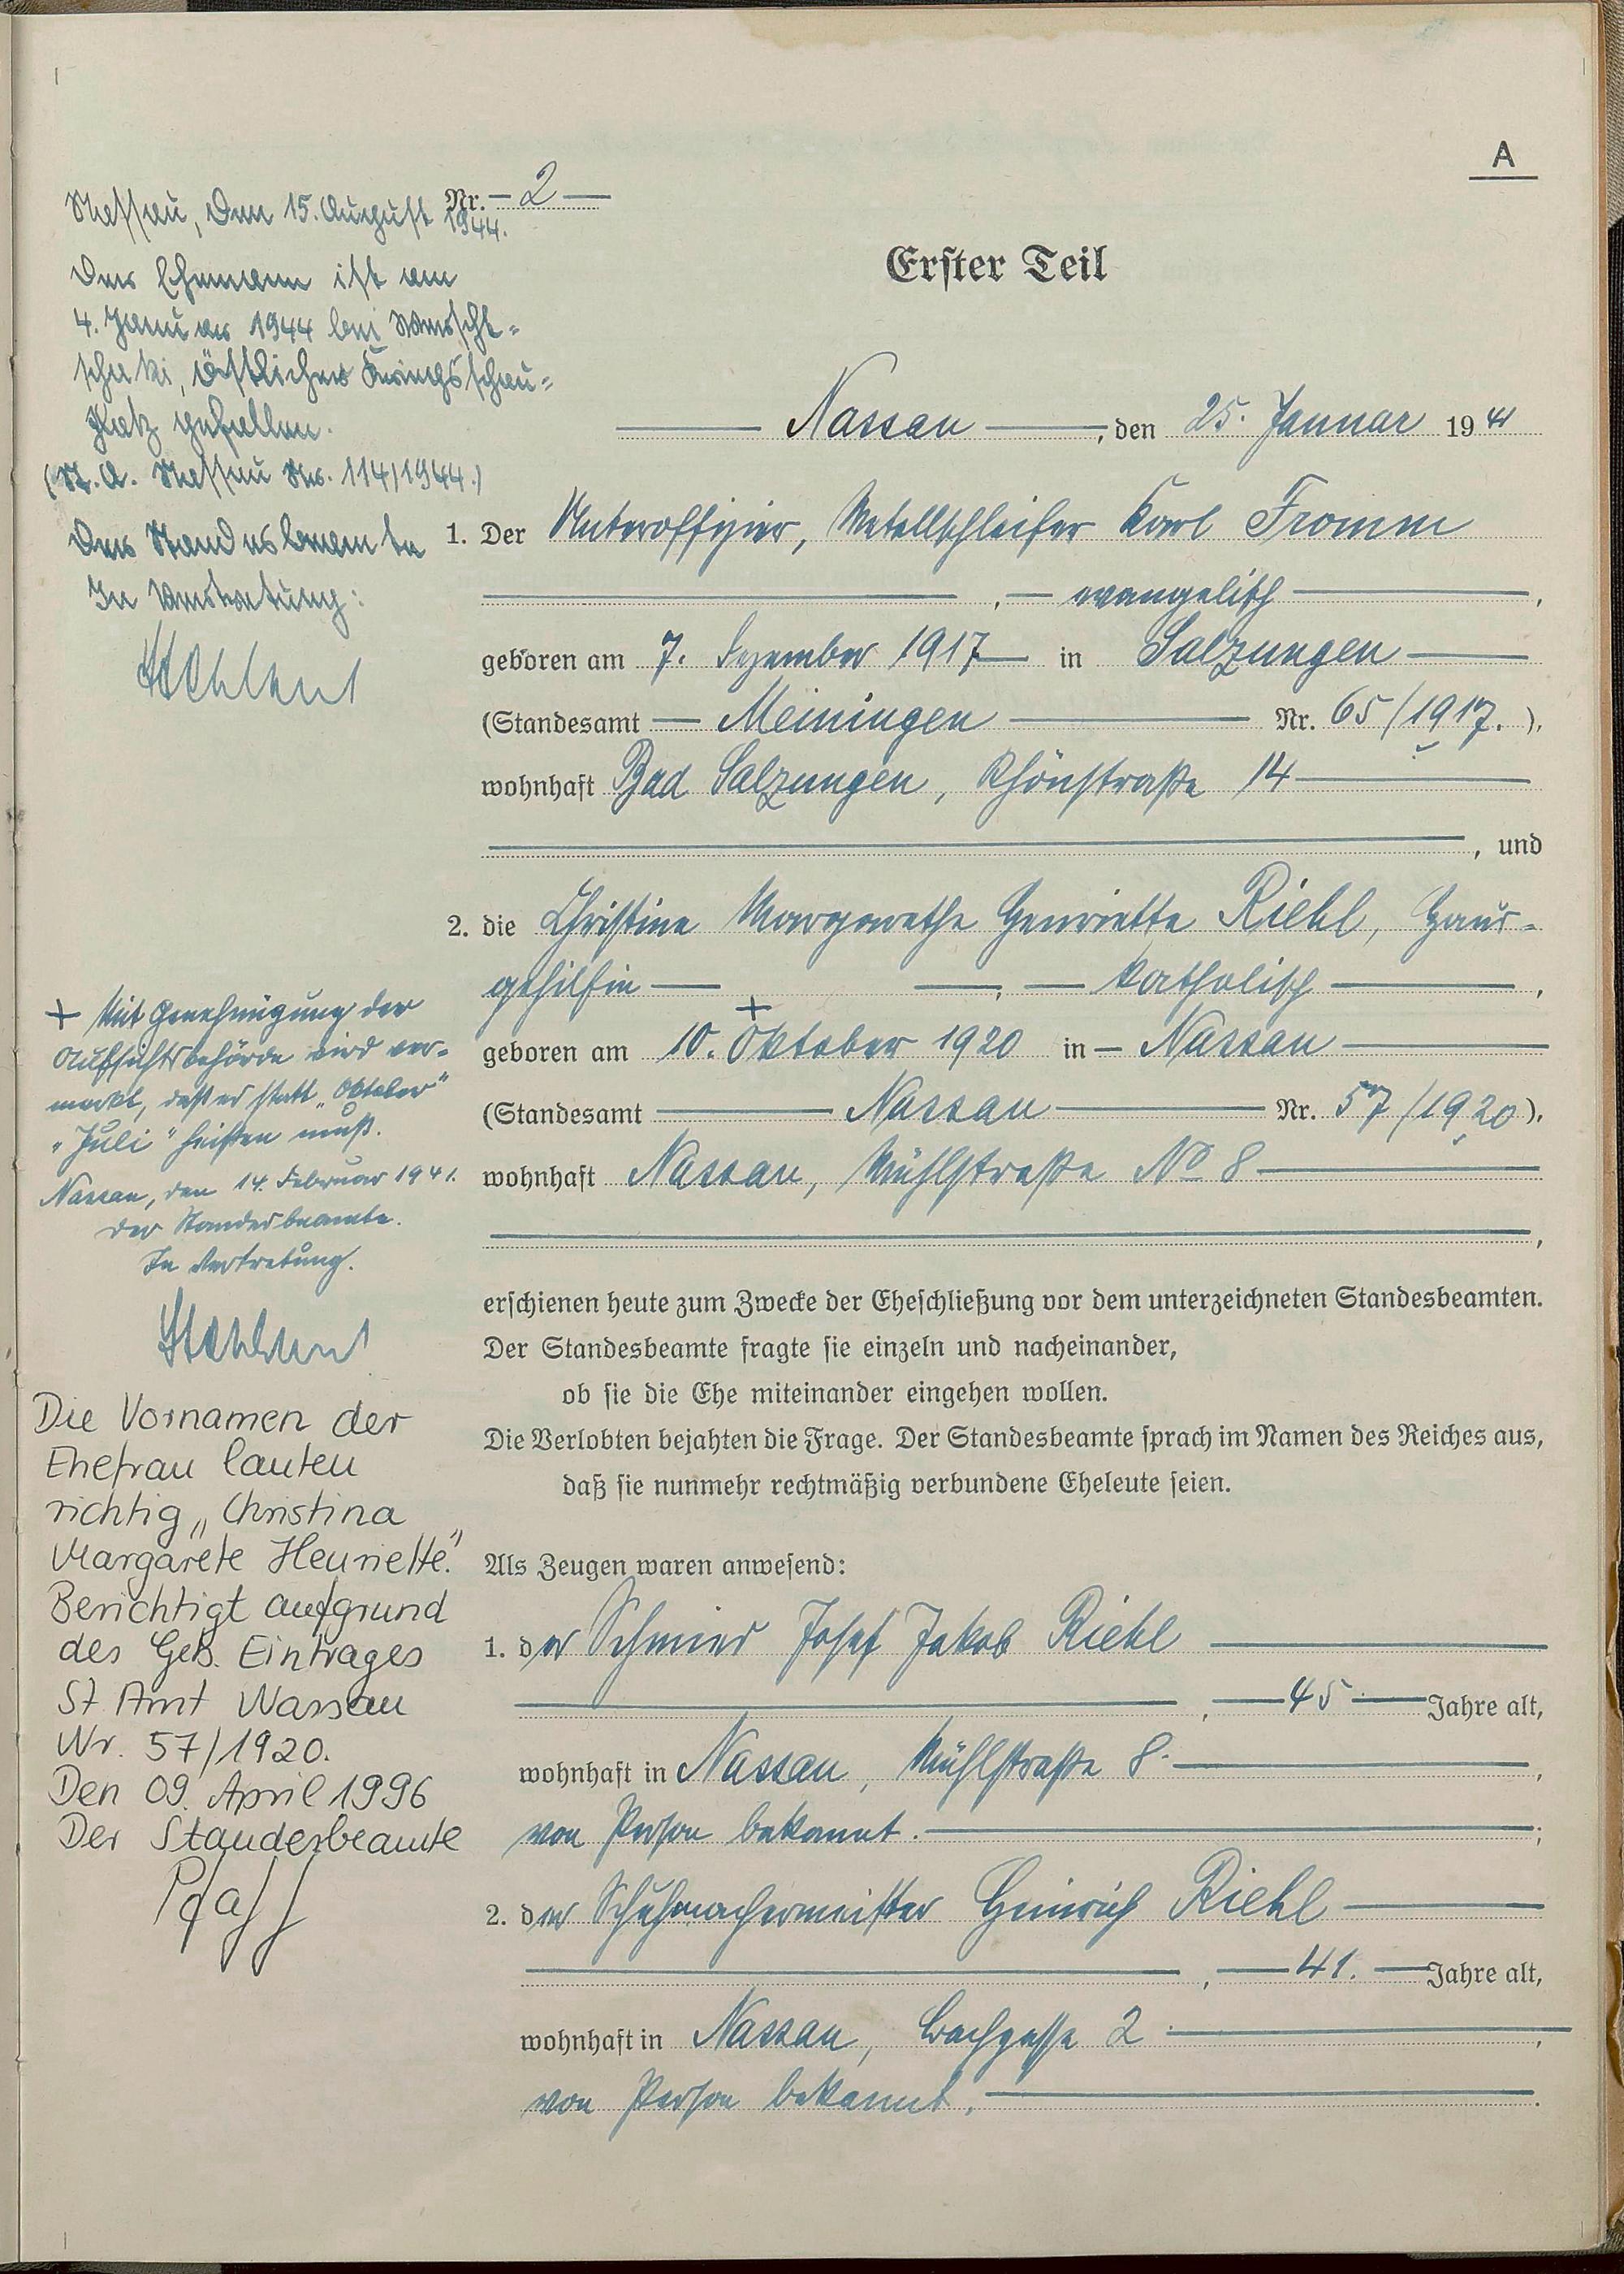 A
Nr. 2
Erster Teil
Nassau, den 25. Januar 1941
1. Der Unteroffizier, Metallschleifer Karl Fromm
, evangelisch ,
geboren am 7. Dezember 1917 in Salzungen
(Standesamt Meiningen Nr. 65/1917.),
wohnhaft Bad Salzungen, Rhönstraße 14
, und
2. die Christine Margarethe Henriette Riehl, Haus-
gehilfin , katholisch ,
+
geboren am 10. Oktober 1920 in Nassau
(Standesamt Nassau Nr. 57/1920),
wohnhaft Nassau, Mühlstraße No 8
,
erschienen heute zum Zwecke der Eheschließung vor dem unterzeichneten Standesbeamten.
Der Standesbeamte fragte sie einzeln und nacheinander,
ob sie die Ehe miteinander eingehen wollen.
Die Verlobten bejahten die Frage. Der Standesbeamte sprach im Namen des Reiches aus,
daß sie nunmehr rechtmäßig verbundene Eheleute seien.
Als Zeugen waren anwesend:
1. der Schmied Josef Jakob Riehl
, 45 Jahre alt,
wohnhaft in Nassau, Mühlstraße 8.
von Person bekannt. ;
2. der Schuhmachermeister Heinrich Riehl
, 41. Jahre alt,
wohnhaft in Nassau, Bachgasse 2 ,
von Person bekannt.
Nassau, den 15. August 1944.
Der Ehemann ist am
4. Januar 1944 bei
östlicher Kriegsschau-
platz gefallen.
(St. A. Nassau Nr. 114/1944.)
Der Standesbeamte
In Vertretung:
+ Mit Genehmigung der
Aufsichtsbehörde wird ver-
merkt, daß es statt „Oktober"
„Juli" heißen muß.
Nassau, den 14. Februar 1941.
Der Standesbeamte.
In Vertretung.
Die Vornamen der
Ehefrau lauten
richtig „Christina
Margarete Henriette."
Berichtigt aufgrund
des Geb. Eintrages
St Amt Nassau
Nr. 57/1920.
Den 09. April 1996
Der Standesbeamte
Pfaff